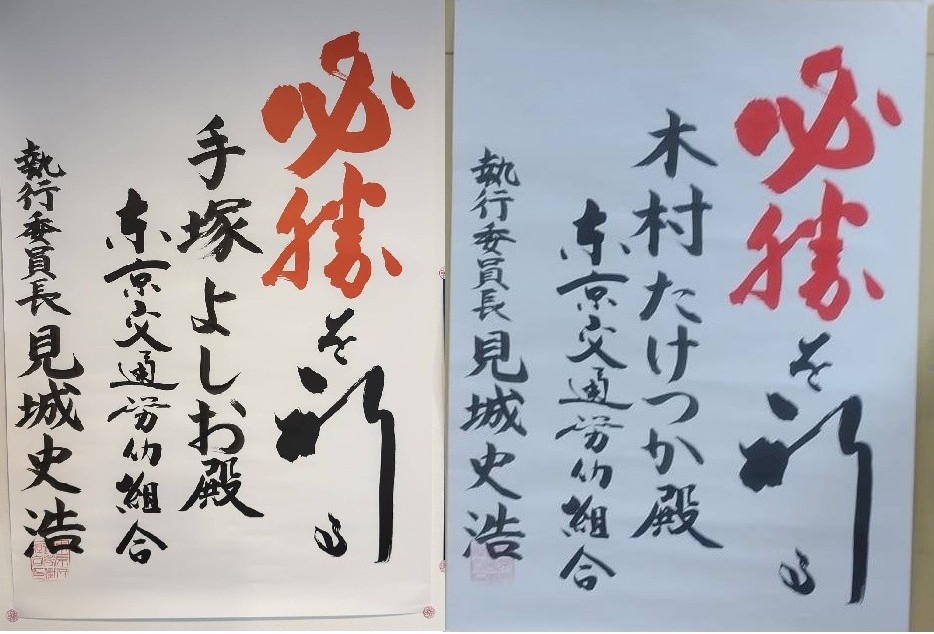 必勝を祈る
手塚よしお殿
東京交通労仂組合
執行委員長 見城史浩
必勝を祈る
木村たけつか殿
東京交通労仂組合
執行委員長 見城史浩